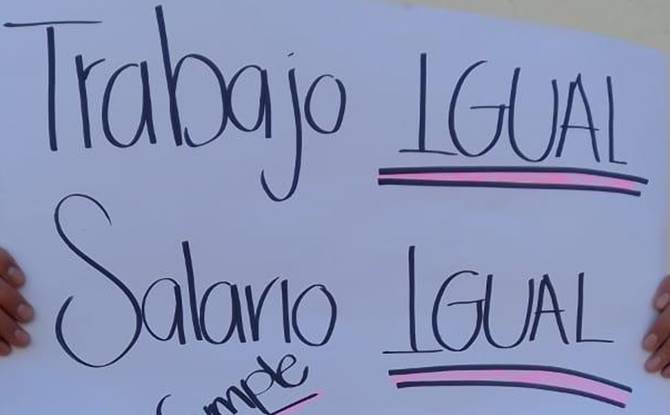 Trabajo IGUAL
Salario IGUAL